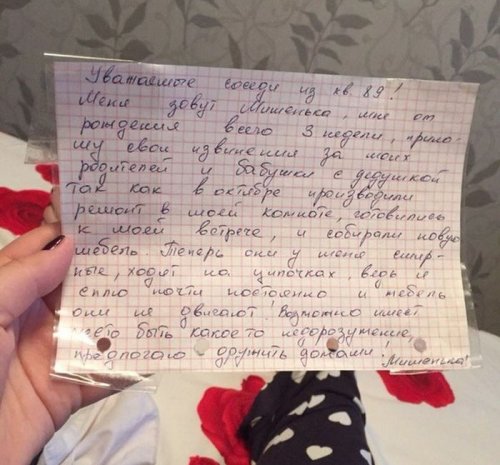 Уважаемые соседи из кв. 89!
Меня зовут Мишенька, мне от
рождения всего 3 недели, прино-
шу свои извинения за моих
родителей и бабушки с дедушкой
так как в октябре производили
ремонт в моей комнате, готовились
к моей встрече, и собирали новую
мебель. Теперь они у меня смир-
ные, ходят на цыпочках, ведь я
сплю почти постоянно и мебель
они не двигают. Возможно имеет
место быть какое то недоразумение,
предлогаю дружить домами!
Мишенька!